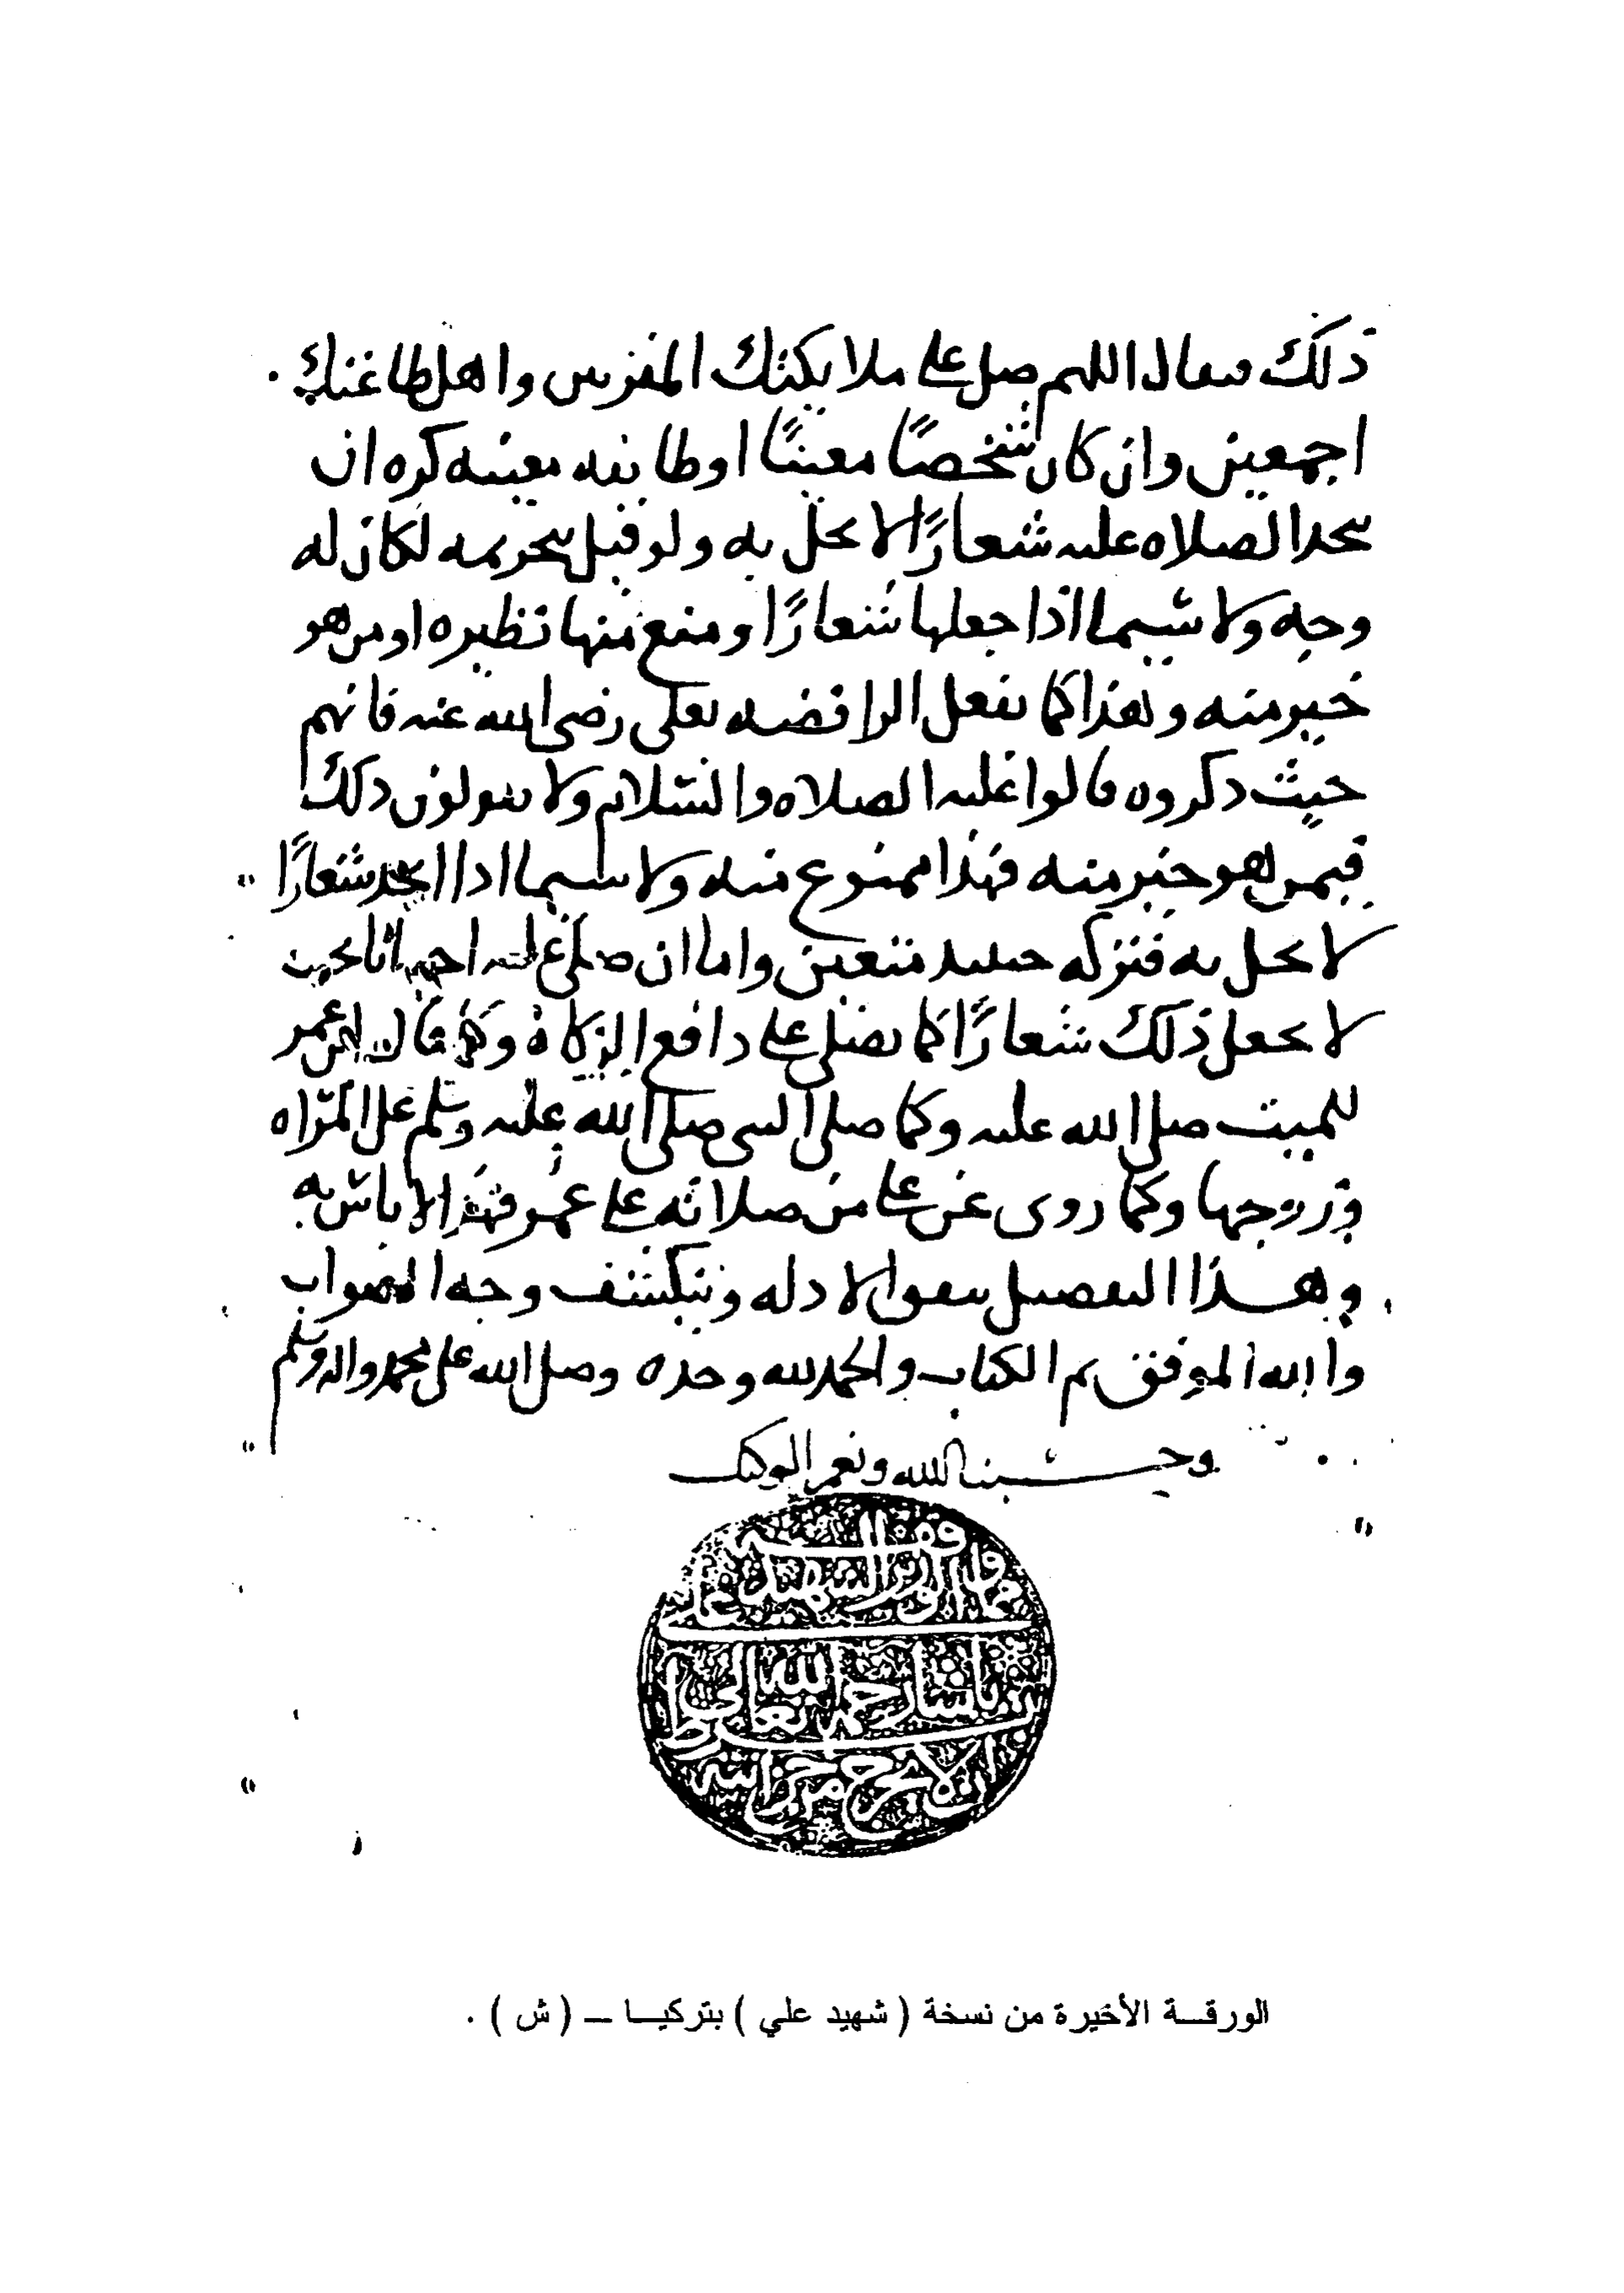 ذلك فيقال اللهم صل على ملايكتك المقربين واهل طاعتك
اجمعين وان كان شخصًا معينًا او طايفه معينه كره ان
يتخذ الصلاه عليه شعارًا لا يخل به ولو قيل بتحريمه لكان له
وجه ولا سيما اذا جعلها شعارًا ومنع منها نظيره او من هو
خير منه وهذا كما تفعل الرافضه بعلى رضى الله عنه فانهم
حيث ذكروه قالوا عليه الصلاه والسلام ولا يقولون ذلك
فيمن هو خير منه فهذا ممنوع منه ولا سيما اذا اتخذ شعارًا
لا يخل به فتركه حينيذ متعين واما ان صلى عليه احيانا بحيث
لا يجعل ذلك شعارًا كما يصلى على دافع الزكاة وكما قال ابن عمر
للميت صلى الله عليه وكما صلى النبى صلى الله عليه وسلم على المراه
وزوجها وكما روى عن على من صلاته على عمر فهذا لا باس به
وهذا التفصيل تتفق الادله وينكشف وجه الصواب
والله الموفق تم الكتاب والحمد لله وحده وصلى الله على محمد واله وسلم
وحسبنا الله ونعم الوكيل
الورقة الأخيرة من نسخة ( شهيد علي ) بتركيا – ( ش ) .